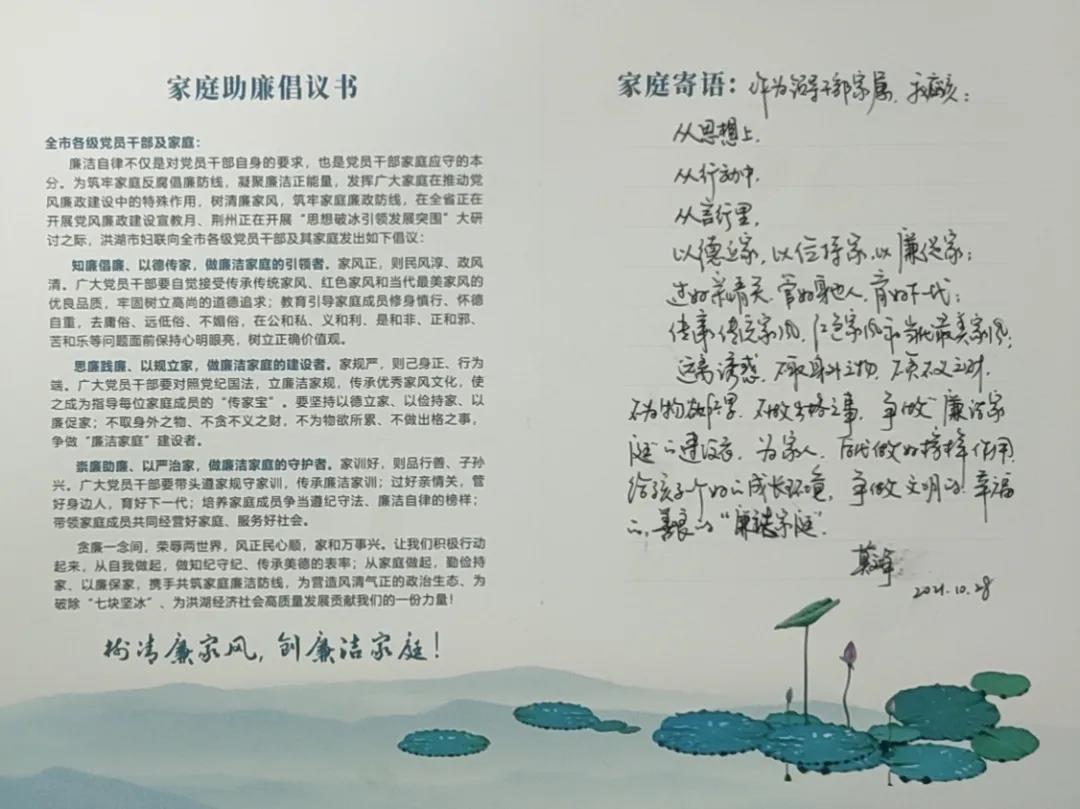 家庭助廉倡议书
全市各级党员干部及家庭：
廉洁自律不仅是对党员干部自身的要求，也是党员干部家庭应守的本
分。为筑牢家庭反腐倡廉防线，凝聚廉洁正能量，发挥广大家庭在推动党
风廉政建设中的特殊作用，树清廉家风，筑牢家庭廉政防线，在全省正在
开展党风廉政建设宣教月、荆州正在开展“思想破冰引领发展突围”大研
讨之际，洪湖市妇联向全市各级党员干部及其家庭发出如下倡议：
知廉倡廉、以德传家，做廉洁家庭的引领者。家风正，则民风淳、政风
清。广大党员干部要自觉接受传承传统家风、红色家风和当代最美家风的
优良品质，牢固树立高尚的道德追求；教育引导家庭成员修身慎行、怀德
自重，去庸俗、远低俗、不媚俗，在公和私、义和利、是和非、正和邪、
苦和乐等问题面前保持心明眼亮，树立正确价值观。
思廉践廉、以规立家，做廉洁家庭的建设者。家规严，则己身正、行为
端。广大党员干部要对照党纪国法，立廉洁家规，传承优秀家风文化，使
之成为指导每位家庭成员的“传家宝”。要坚持以德立家、以俭持家、以
廉促家；不取身外之物、不贪不义之财，不为物欲所累、不做出格之事，
争做“廉洁家庭”建设者。
崇廉助廉、以严治家，做廉洁家庭的守护者。家训好，则品行善、子孙
兴。广大党员干部要带头遵家规守家训，传承廉洁家训；过好亲情关，管
好身边人，育好下一代；培养家庭成员争当遵纪守法、廉洁自律的榜样；
带领家庭成员共同经营好家庭、服务好社会。
贪廉一念间，荣辱两世界，风正民心顺，家和万事兴。让我们积极行动
起来，从自我做起，做知纪守纪、传承美德的表率；从家庭做起，勤俭持
家、以廉保家，携手共筑家庭廉洁防线，为营造风清气正的政治生态、为
破除“七块坚冰”、为洪湖经济社会高质量发展贡献我们的一份力量！
树清廉家风，创廉洁家庭！
家庭寄语：作为领导干部家属，我应该：
从思想上，
从行动中，
从言行里，
以德立家，以俭持家，以廉促家；
过好亲情关，管好身边人，育好下一代；
传承传统家风，红色家风和当代最美家风；
远离诱惑，不取身外之物，不贪不义之财，
不为物欲所累，不做出格之事，争做“廉洁家
庭”的建设者，为家人，后代做好榜样作用，
给孩子一个好的成长环境，争做文明的，幸福
的，善良的“廉洁家庭”。
2021.10.28